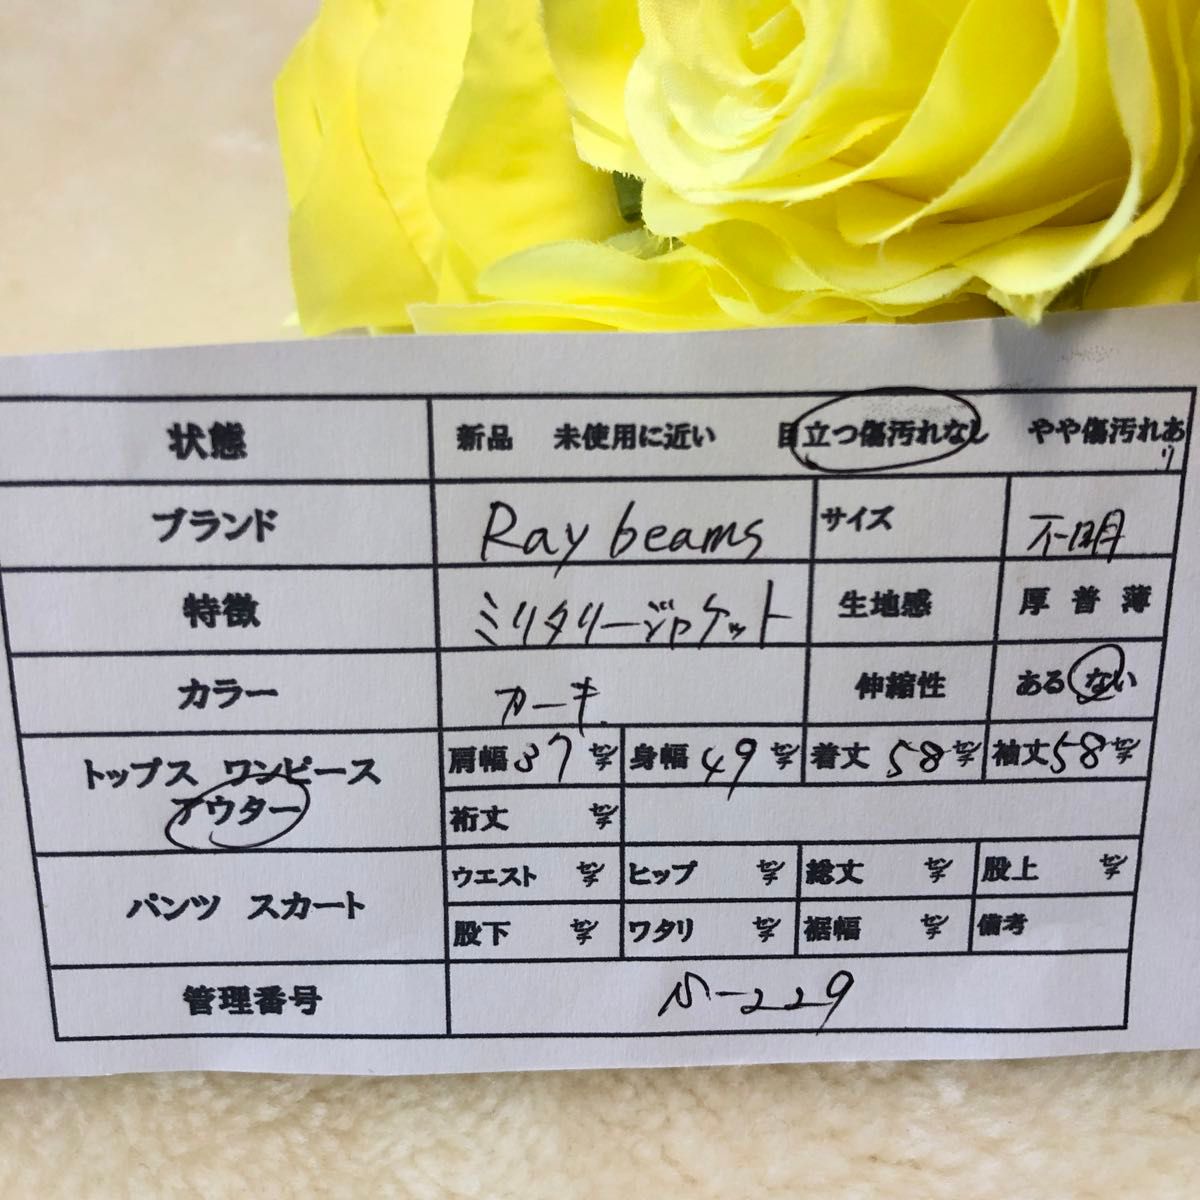 状態 新品 未使用に近い 目立つ傷汚れなし やや傷汚れあり
ブランド Ray beams サイズ 不明
特徴 ミリタリージャケット 生地感 厚 普 薄
カラー カーキ 伸縮性 ある ない
トップス ワンピース アウター 肩幅 37 センチ 身幅 49 センチ 着丈 58 センチ 袖丈 58 センチ
裄丈 センチ
パンツ スカート ウエスト センチ ヒップ センチ 総丈 センチ 股上 センチ
股下 センチ ワタリ センチ 裾幅 センチ 備考
管理番号 -229